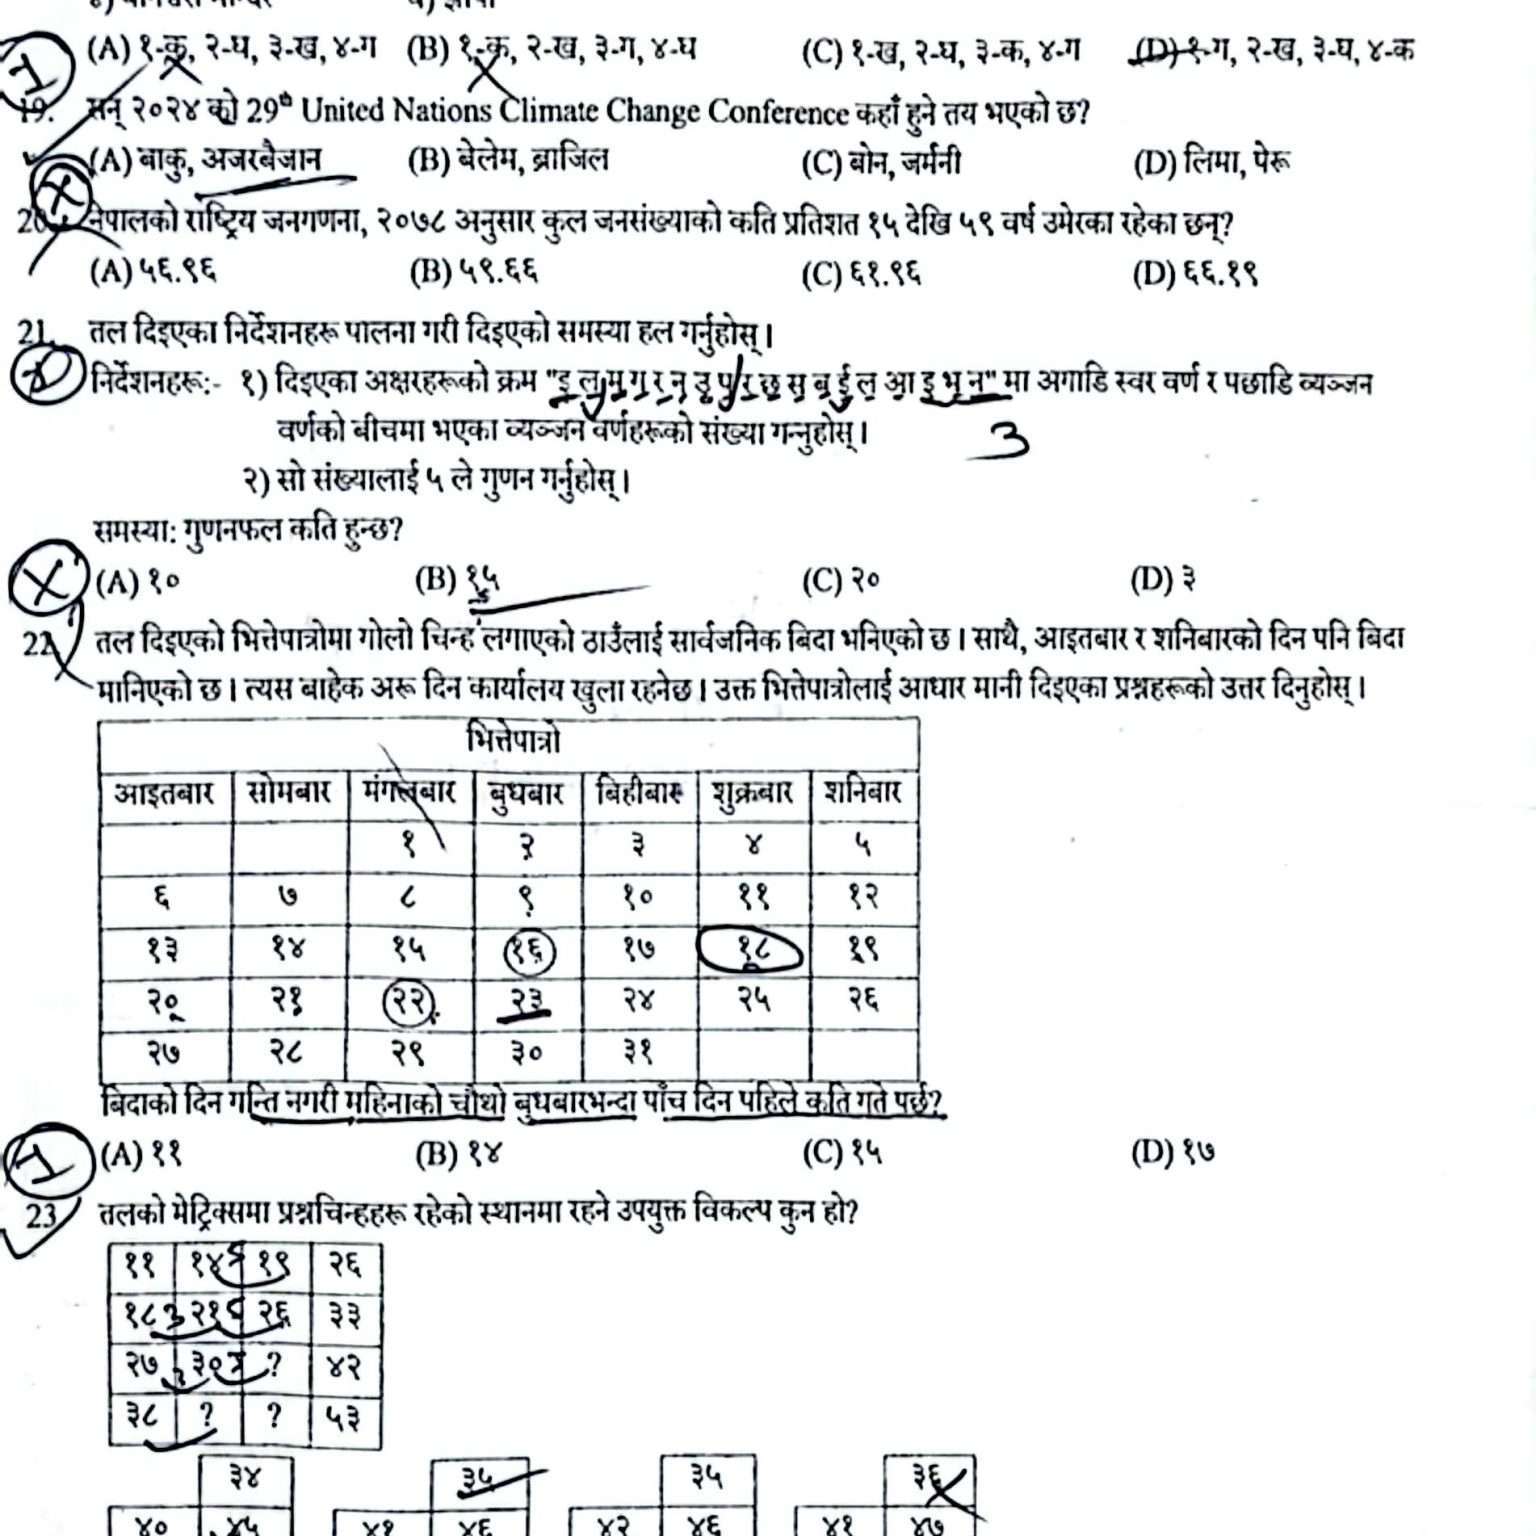 (A) १-क, २-घ, ३-ख, ४-ग (B) १-क, २-ख, ३-ग, ४-घ (C) १-ख, २-घ, ३-क, ४-ग (D) १-ग, २-ख, ३-घ, ४-क
19. सन् २०२४ को 29th United Nations Climate Change Conference कहाँ हुने तय भएको छ?
(A) बाकु, अजरबैजान (B) बेलेम, ब्राजिल (C) बोन, जर्मनी (D) लिमा, पेरू
20. नेपालको राष्ट्रिय जनगणना, २०७८ अनुसार कुल जनसंख्याको कति प्रतिशत १५ देखि ५९ वर्ष उमेरका रहेका छन्?
(A) ५६.९६ (B) ५९.६६ (C) ६१.९६ (D) ६६.१९
21. तल दिइएका निर्देशनहरू पालना गरी दिइएको समस्या हल गर्नुहोस्।
निर्देशनहरू:- १) दिइएका अक्षरहरूको क्रम "इ लु म ग र न उ प र छ स ब ई ल आ इ भ न" मा अगाडि स्वर वर्ण र पछाडि व्यञ्जन
वर्णको बीचमा भएका व्यञ्जन वर्णहरूको संख्या गन्नुहोस्। 3
२) सो संख्यालाई ५ ले गुणन गर्नुहोस्।
समस्या: गुणनफल कति हुन्छ?
(A) १० (B) १५ (C) २० (D) ३
22. तल दिइएको भित्तेपात्रोमा गोलो चिन्ह लगाएको ठाउँलाई सार्वजनिक बिदा भनिएको छ। साथै, आइतबार र शनिबारको दिन पनि बिदा
मानिएको छ। त्यस बाहेक अरू दिन कार्यालय खुला रहनेछ। उक्त भित्तेपात्रोलाई आधार मानी दिइएका प्रश्नहरूको उत्तर दिनुहोस्।
भित्तेपात्रो
आइतबार सोमबार मंगलबार बुधबार बिहीबार शुक्रबार शनिबार
१ २ ३ ४ ५
६ ७ ८ ९ १० ११ १२
१३ १४ १५ १६ १७ १८ १९
२० २१ २२ २३ २४ २५ २६
२७ २८ २९ ३० ३१
बिदाको दिन गन्ति नगरी महिनाको चौथो बुधबारभन्दा पाँच दिन पहिले कति गते पर्छ?
(A) ११ (B) १४ (C) १५ (D) १७
23 तलको मेट्रिक्समा प्रश्नचिन्हहरू रहेको स्थानमा रहने उपयुक्त विकल्प कुन हो?
११ १४ १९ २६
१८ २१ २६ ३३
२७ ३० ? ४२
३८ ? ? ५३
३४ ३५ ३५ ३६
४० ४५ ४१ ४६ ४२ ४६ ४१ ४७